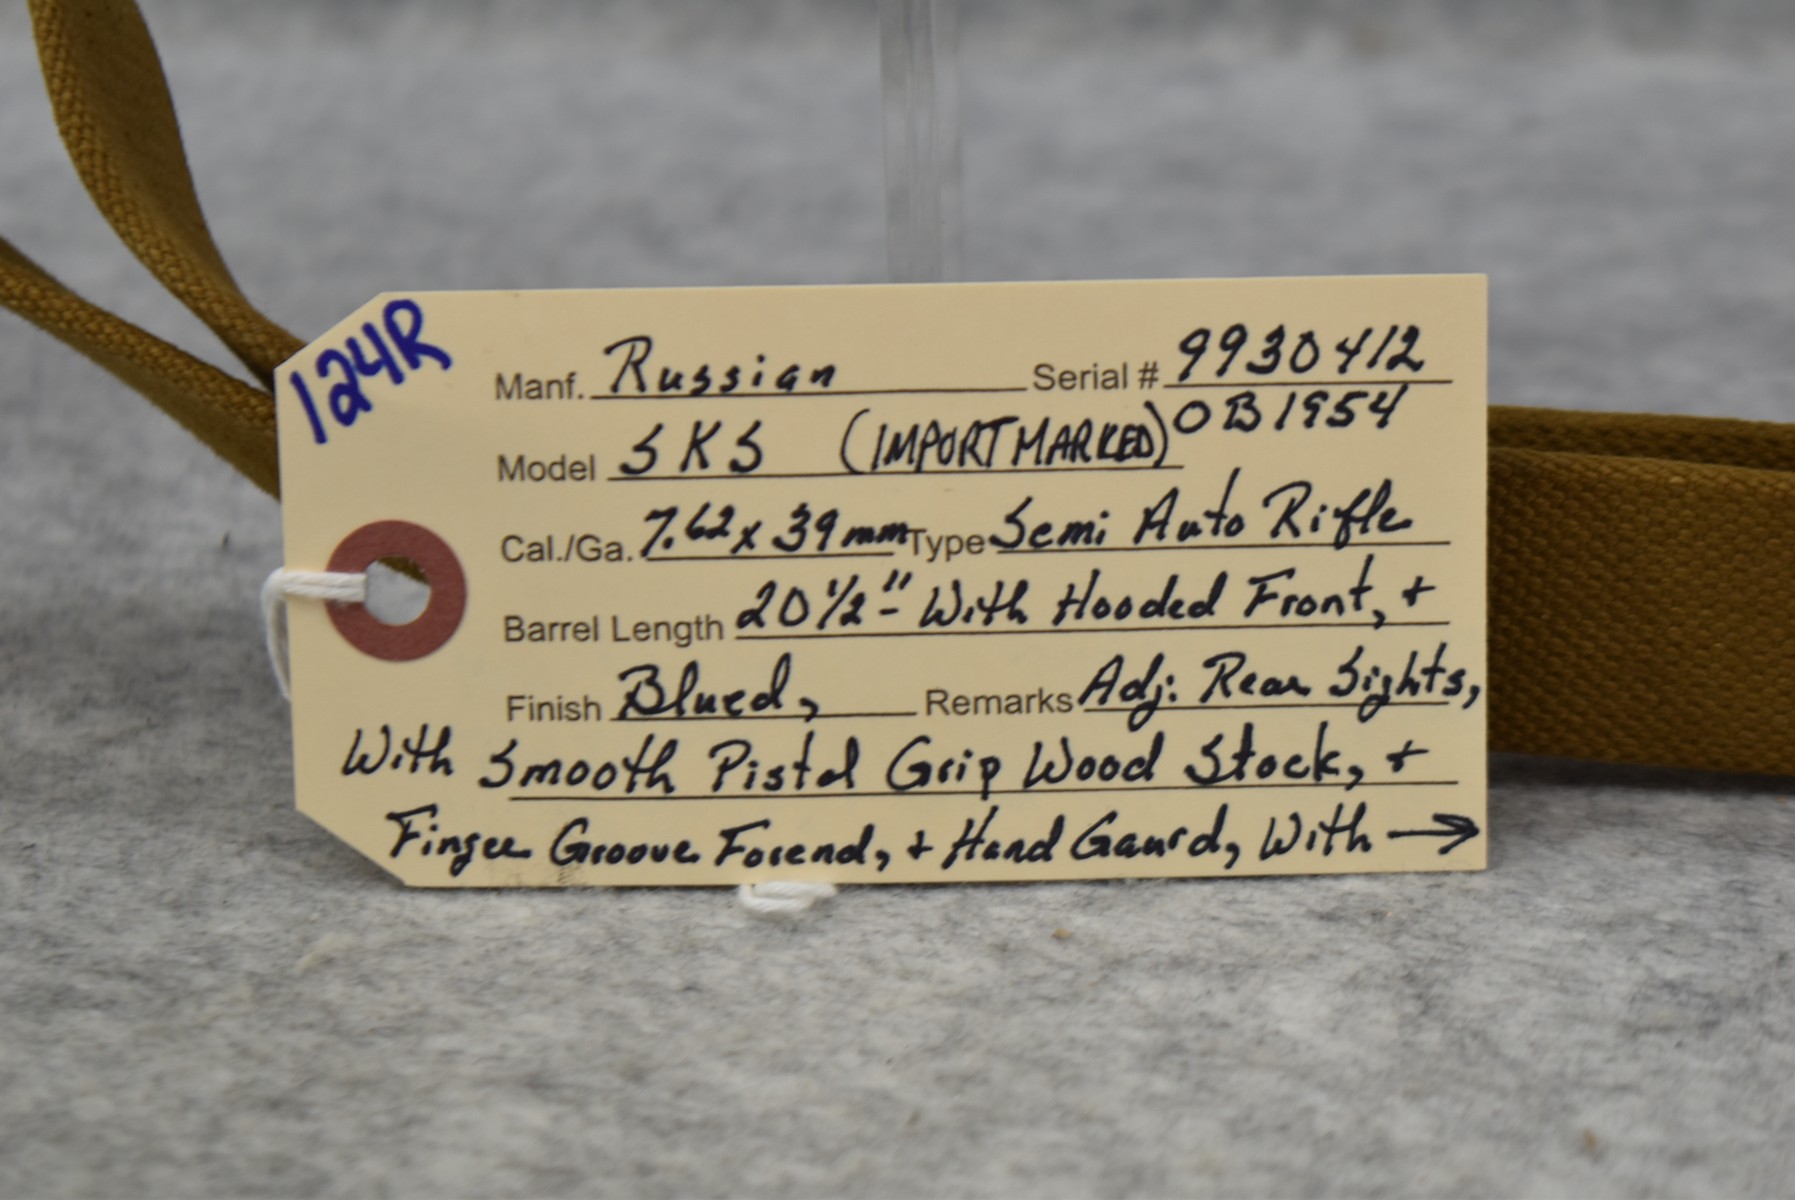 124R
Manf. Russian Serial # 9930412
OB1954
Model SKS (IMPORT MARKED)
Cal./Ga. 7.62x39mm Type Semi Auto Rifle
Barrel Length 20 1/2" - With Hooded Front, +
Finish Blued, Remarks Adj. Rear Sights,
With Smooth Pistol Grip Wood Stock, +
Finger Groove Forend, + Hand Gaurd, With →